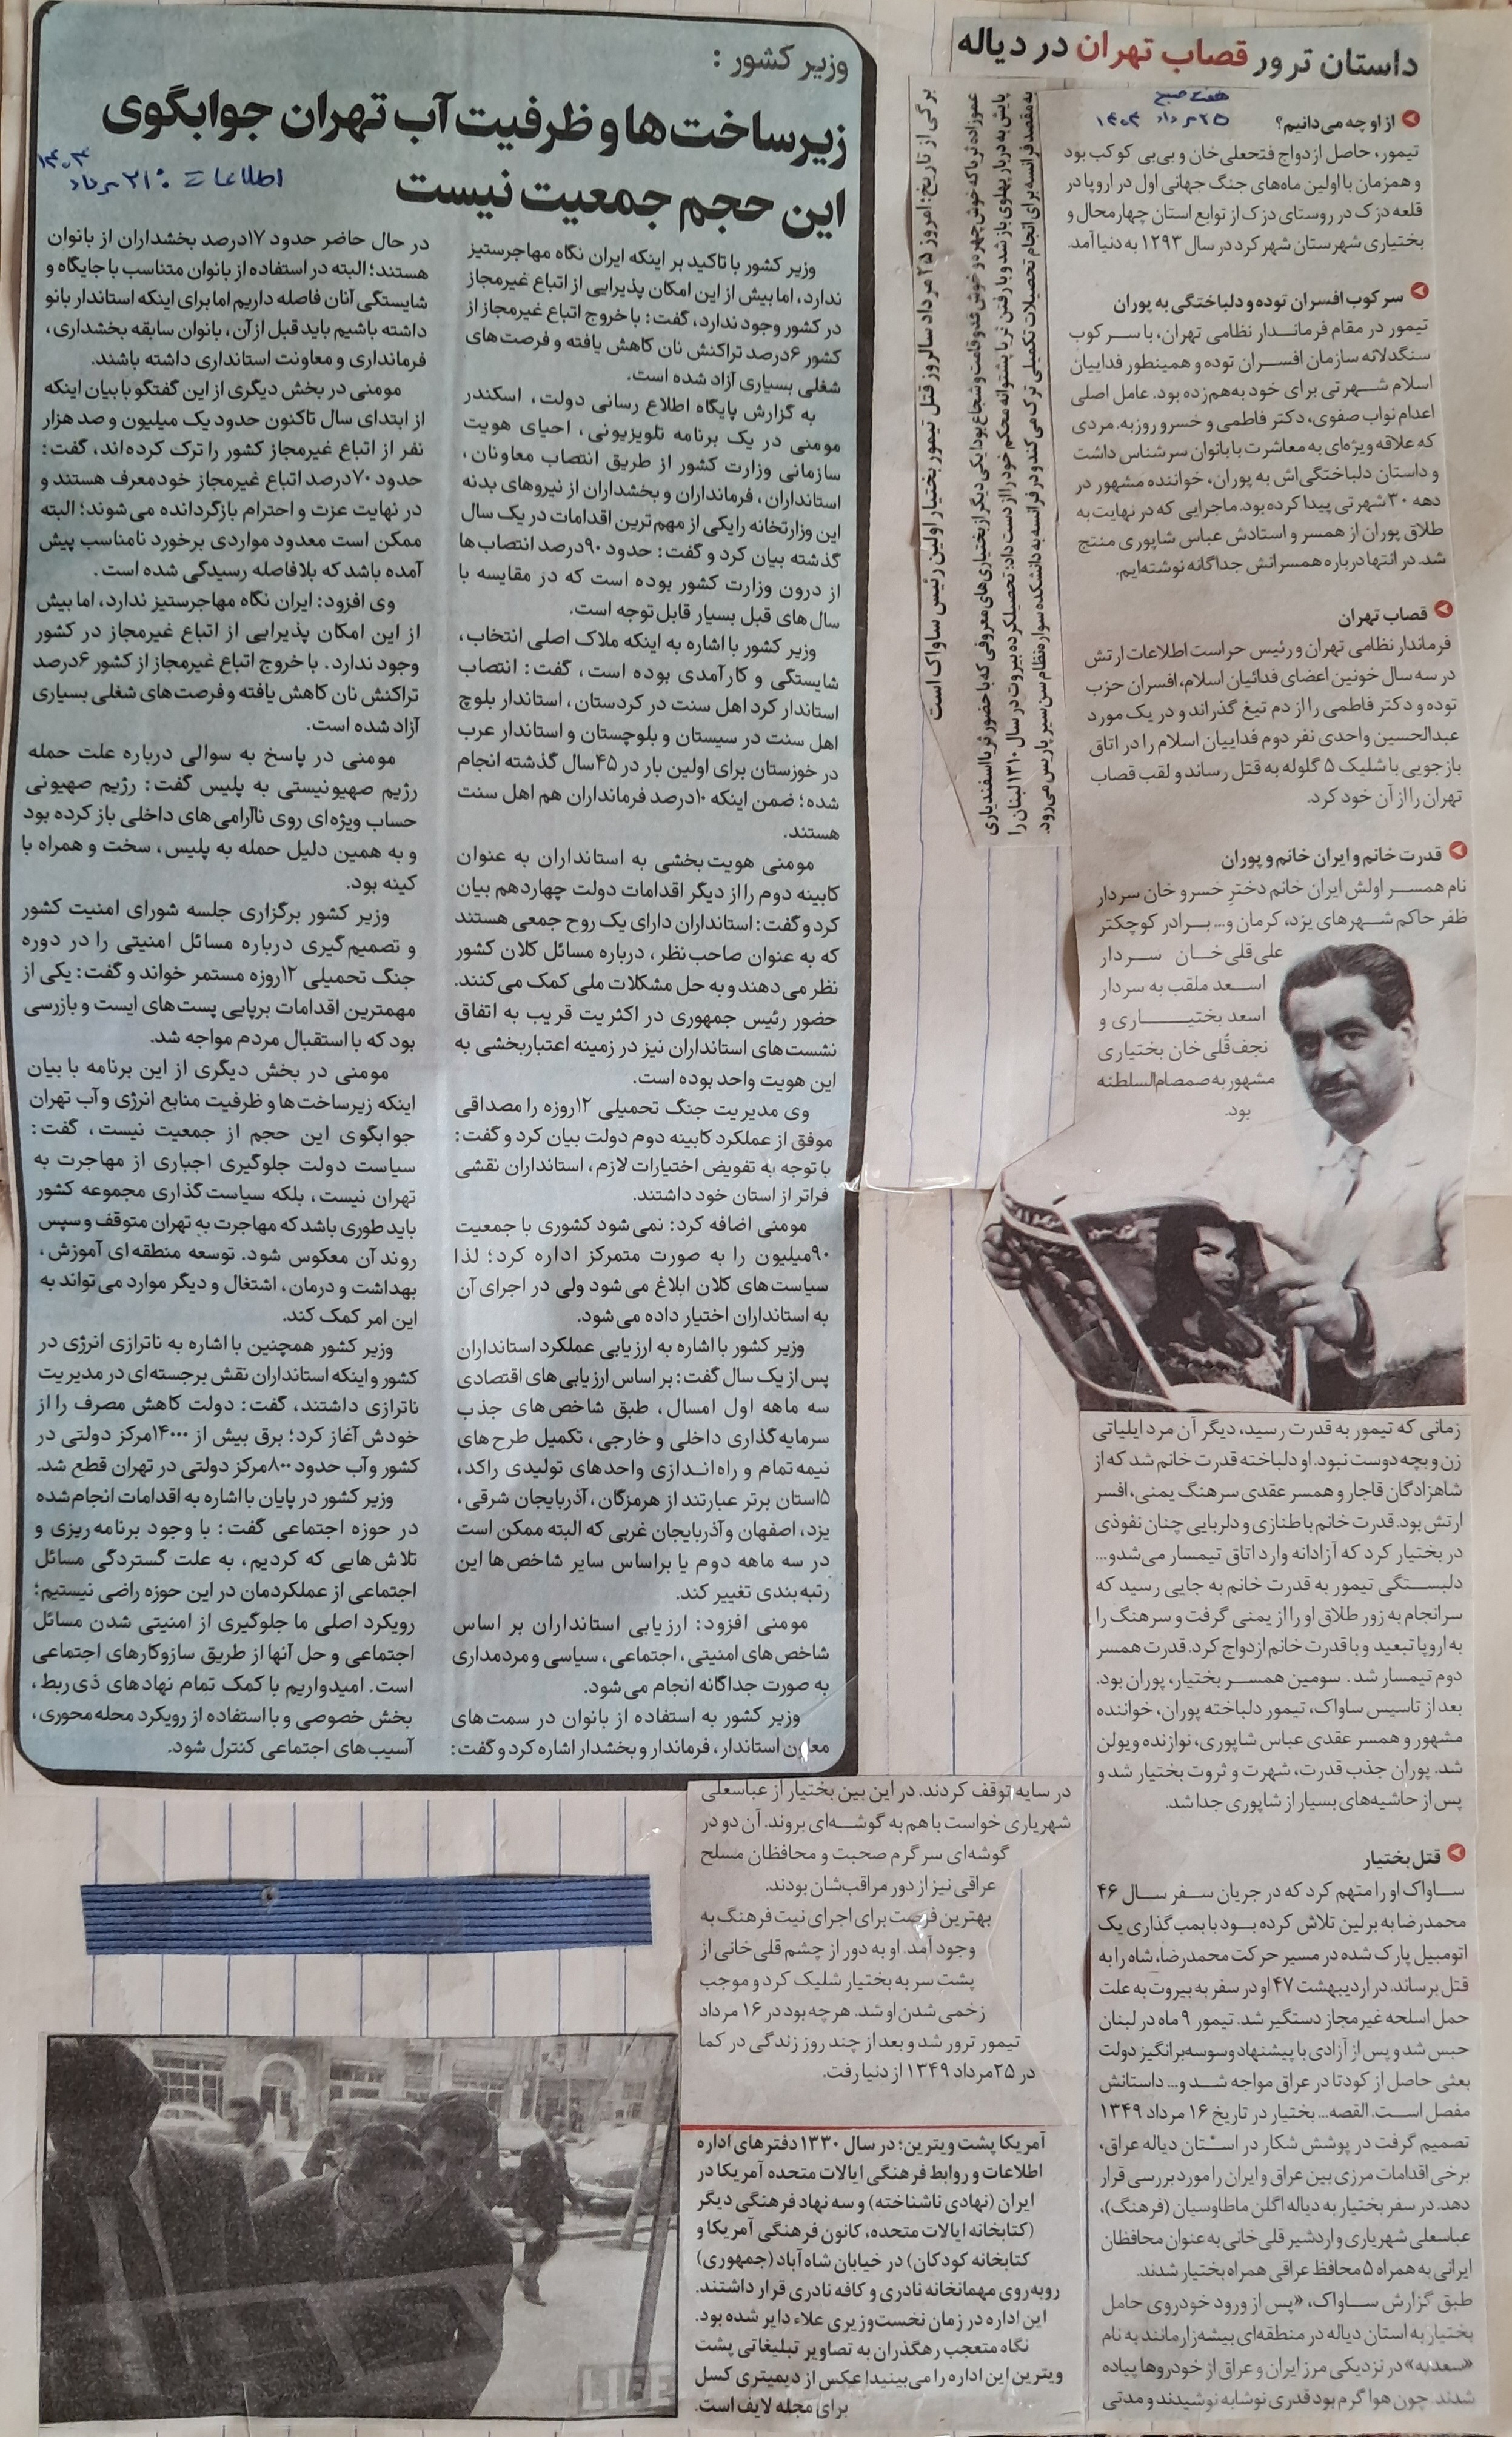 داستان ترور قصاب تهران در دیاله
هفت صبح
۲۵ مرداد ۱۴۰۴
از او چه می‌دانیم؟
تیمور، حاصل ازدواج فتحعلی‌خان و بی‌بی کوکب بود
و همزمان با اولین ماه‌های جنگ جهانی اول در اروپا در
قلعه دزک در روستای دزک از توابع استان چهارمحال و
بختیاری شهرستان شهرکرد در سال ۱۲۹۳ به دنیا آمد.
سرکوب افسران توده و دلباختگی به پوران
تیمور در مقام فرماندار نظامی تهران، با سرکوب
سنگدلانه سازمان افسران توده و همینطور فداییان
اسلام شهرتی برای خود به‌هم‌زده بود. عامل اصلی
اعدام نواب صفوی، دکتر فاطمی و خسرو روزبه. مردی
که علاقه ویژه‌ای به معاشرت با بانوان سرشناس داشت
و داستان دلباختگی‌اش به پوران، خواننده مشهور در
دهه ۳۰ شهرتی پیدا کرده بود. ماجرایی که در نهایت به
طلاق پوران از همسر و استادش عباس شاپوری منتج
شد. در انتها درباره همسرانش جداگانه نوشته‌ایم.
قصاب تهران
فرماندار نظامی تهران و رئیس حراست اطلاعات ارتش
در سه سال خونین اعضای فدائیان اسلام، افسران حزب
توده و دکتر فاطمی را از دم تیغ گذراند و در یک مورد
عبدالحسین واحدی نفر دوم فداییان اسلام را در اتاق
بازجویی با شلیک ۵ گلوله به قتل رساند و لقب قصاب
تهران را از آن خود کرد.
قدرت خانم و ایران خانم و پوران
نام همسر اولش ایران خانم دختر خسرو خان سردار
ظفر حاکم شهرهای یزد، کرمان و... برادر کوچکتر
علی‌قلی‌خان سردار
اسعد ملقب به سردار
اسعد بختیاری و
نجف‌قلی‌خان بختیاری
مشهور به صمصام‌السلطنه
بود.
زمانی که تیمور به قدرت رسید، دیگر آن مرد ایلیاتی
زن و بچه دوست نبود. او دلباخته قدرت خانم شد که از
شاهزادگان قاجار و همسر عقدی سرهنگ یمنی، افسر
ارتش بود. قدرت خانم با طنازی و دلربایی چنان نفوذی
در بختیار کرد که آزادانه وارد اتاق تیمسار می‌شد و...
دلبستگی تیمور به قدرت خانم به جایی رسید که
سرانجام به زور طلاق او را از یمنی گرفت و سرهنگ را
به اروپا تبعید و با قدرت خانم ازدواج کرد. قدرت همسر
دوم تیمسار شد . سومین همسر بختیار، پوران بود.
بعد از تاسیس ساواک، تیمور دلباخته پوران، خواننده
مشهور و همسر عقدی عباس شاپوری، نوازنده ویولن
شد. پوران جذب قدرت، شهرت و ثروت بختیار شد و
پس از حاشیه‌های بسیار از شاپوری جدا شد.
قتل بختیار
ساواک او را متهم کرد که در جریان سفر سال ۴۶
محمدرضا به برلین تلاش کرده بود با بمب‌گذاری یک
اتومبیل پارک شده در مسیر حرکت محمدرضا، شاه را به
قتل برساند. در اردیبهشت ۴۷ او در سفر به بیروت به علت
حمل اسلحه غیرمجاز دستگیر شد. تیمور ۹ ماه در لبنان
حبس شد و پس از آزادی با پیشنهاد وسوسه‌برانگیز دولت
بعثی حاصل از کودتا در عراق مواجه شد و... داستانش
مفصل است. القصه... بختیار در تاریخ ۱۶ مرداد ۱۳۴۹
تصمیم گرفت در پوشش شکار در استان دیاله عراق،
برخی اقدامات مرزی بین عراق و ایران را مورد بررسی قرار
دهد. در سفر بختیار به دیاله اگلن ماطاوسیان (فرهنگ)،
عباسعلی شهریاری و اردشیر قلی‌خانی به عنوان محافظان
ایرانی به همراه ۵ محافظ عراقی همراه بختیار شدند.
طبق گزارش ساواک، «پس از ورود خودروی حامل
بختیار به استان دیاله در منطقه‌ای بیشه‌زار مانند به نام
«سعدیه» در نزدیکی مرز ایران و عراق از خودروها پیاده
شدند. چون هوا گرم بود قدری نوشابه نوشیدند و مدتی
در سایه توقف کردند. در این بین بختیار از عباسعلی
شهریاری خواست با هم به گوشه‌ای بروند. آن دو در
گوشه‌ای سرگرم صحبت و محافظان مسلح
عراقی نیز از دور مراقب‌شان بودند.
بهترین فرصت برای اجرای نیت فرهنگ به
وجود آمد. او به دور از چشم قلی‌خانی از
پشت سر به بختیار شلیک کرد و موجب
زخمی شدن او شد. هرچه بود در ۱۶ مرداد
تیمور ترور شد و بعد از چند روز زندگی در کما
در ۲۵ مرداد ۱۳۴۹ از دنیا رفت.
برگی از تاریخ: امروز ۲۵ مرداد سالروز قتل تیمور بختیار اولین رئیس ساواک است
عموزاده ثریا که خوش‌چهره و خوش‌قد و قامت و شجاع بود؛ یکی دیگر از بختیاری‌های معروفی که با حضور ثریا اسفندیاری
پایش به دربار پهلوی باز شد و با رفتن ثریا پشتوانه محکم خود را از دست داد. تحصیلکرده بیروت در سال ۱۳۱۰ لبنان را
به مقصد فرانسه برای انجام تحصیلات تکمیلی ترک می‌کند و در فرانسه به دانشکده سواره‌نظام سن‌سیر پاریس می‌رود.
وزیر کشور :
زیرساخت‌ها و ظرفیت آب تهران جوابگوی
این حجم جمعیت نیست
اطلاعات : ۲۱ مرداد ۱۴۰۴
وزیر کشور با تاکید بر اینکه ایران نگاه مهاجرستیز
ندارد، اما بیش از این امکان پذیرایی از اتباع غیرمجاز
در کشور وجود ندارد، گفت: با خروج اتباع غیرمجاز از
کشور ۶درصد تراکنش نان کاهش یافته و فرصت‌های
شغلی بسیاری آزاد شده است.
به گزارش پایگاه اطلاع رسانی دولت، اسکندر
مومنی در یک برنامه تلویزیونی، احیای هویت
سازمانی وزارت کشور از طریق انتصاب معاونان،
استانداران، فرمانداران و بخشداران از نیروهای بدنه
این وزارتخانه را یکی از مهم‌ترین اقدامات در یک سال
گذشته بیان کرد و گفت: حدود ۹۰درصد انتصاب‌ها
از درون وزارت کشور بوده است که در مقایسه با
سال‌های قبل بسیار قابل توجه است.
وزیر کشور با اشاره به اینکه ملاک اصلی انتخاب،
شایستگی و کارآمدی بوده است، گفت: انتصاب
استاندار کرد اهل سنت در کردستان، استاندار بلوچ
اهل سنت در سیستان و بلوچستان و استاندار عرب
در خوزستان برای اولین بار در ۴۵سال گذشته انجام
شده؛ ضمن اینکه ۱۰درصد فرمانداران هم اهل سنت
هستند.
مومنی هویت بخشی به استانداران به عنوان
کابینه دوم را از دیگر اقدامات دولت چهاردهم بیان
کرد و گفت: استانداران دارای یک روح جمعی هستند
که به عنوان صاحب نظر، درباره مسائل کلان کشور
نظر می‌دهند و به حل مشکلات ملی کمک می‌کنند.
حضور رئیس جمهوری در اکثریت قریب به اتفاق
نشست‌های استانداران نیز در زمینه اعتباربخشی به
این هویت واحد بوده است.
وی مدیریت جنگ تحمیلی ۱۲روزه را مصداقی
موفق از عملکرد کابینه دوم دولت بیان کرد و گفت:
با توجه به تفویض اختیارات لازم، استانداران نقشی
فراتر از استان خود داشتند.
مومنی اضافه کرد: نمی‌شود کشوری با جمعیت
۹۰میلیون را به صورت متمرکز اداره کرد؛ لذا
سیاست‌های کلان ابلاغ می‌شود ولی در اجرای آن
به استانداران اختیار داده می‌شود.
وزیر کشور با اشاره به ارزیابی عملکرد استانداران
پس از یک سال گفت: بر اساس ارزیابی‌های اقتصادی
سه ماهه اول امسال، طبق شاخص‌های جذب
سرمایه‌گذاری داخلی و خارجی، تکمیل طرح‌های
نیمه تمام و راه‌اندازی واحدهای تولیدی راکد،
۵استان برتر عبارتند از هرمزگان، آذربایجان شرقی،
یزد، اصفهان و آذربایجان غربی که البته ممکن است
در سه ماهه دوم یا براساس سایر شاخص‌ها این
رتبه‌بندی تغییر کند.
مومنی افزود: ارزیابی استانداران بر اساس
شاخص‌های امنیتی، اجتماعی، سیاسی و مردمداری
به صورت جداگانه انجام می‌شود.
وزیر کشور به استفاده از بانوان در سمت‌های
معاون استاندار، فرماندار و بخشدار اشاره کرد و گفت:
در حال حاضر حدود ۱۷درصد بخشداران از بانوان
هستند؛ البته در استفاده از بانوان متناسب با جایگاه و
شایستگی آنان فاصله داریم اما برای اینکه استاندار بانو
داشته باشیم باید قبل از آن، بانوان سابقه بخشداری،
فرمانداری و معاونت استانداری داشته باشند.
مومنی در بخش دیگری از این گفتگو با بیان اینکه
از ابتدای سال تاکنون حدود یک میلیون و صد هزار
نفر از اتباع غیرمجاز کشور را ترک کرده‌اند، گفت:
حدود ۷۰درصد اتباع غیرمجاز خودمعرف هستند و
در نهایت عزت و احترام بازگردانده می‌شوند؛ البته
ممکن است معدود مواردی برخورد نامناسب پیش
آمده باشد که بلافاصله رسیدگی شده است .
وی افزود: ایران نگاه مهاجرستیز ندارد، اما بیش
از این امکان پذیرایی از اتباع غیرمجاز در کشور
وجود ندارد. با خروج اتباع غیرمجاز از کشور ۶درصد
تراکنش نان کاهش یافته و فرصت‌های شغلی بسیاری
آزاد شده است.
مومنی در پاسخ به سوالی درباره علت حمله
رژیم صهیونیستی به پلیس گفت: رژیم صهیونی
حساب ویژه‌ای روی ناآرامی‌های داخلی باز کرده بود
و به همین دلیل حمله به پلیس، سخت و همراه با
کینه بود.
وزیر کشور برگزاری جلسه شورای امنیت کشور
و تصمیم گیری درباره مسائل امنیتی را در دوره
جنگ تحمیلی ۱۲روزه مستمر خواند و گفت: یکی از
مهمترین اقدامات برپایی پست‌های ایست و بازرسی
بود که با استقبال مردم مواجه شد.
مومنی در بخش دیگری از این برنامه با بیان
اینکه زیرساخت‌ها و ظرفیت منابع انرژی و آب تهران
جوابگوی این حجم از جمعیت نیست، گفت:
سیاست دولت جلوگیری اجباری از مهاجرت به
تهران نیست، بلکه سیاست گذاری مجموعه کشور
باید طوری باشد که مهاجرت به تهران متوقف و سپس
روند آن معکوس شود. توسعه منطقه‌ای آموزش،
بهداشت و درمان، اشتغال و دیگر موارد می‌تواند به
این امر کمک کند.
وزیر کشور همچنین با اشاره به ناترازی انرژی در
کشور و اینکه استانداران نقش برجسته‌ای در مدیریت
ناترازی داشتند، گفت: دولت کاهش مصرف را از
خودش آغاز کرد؛ برق بیش از ۱۴۰۰۰مرکز دولتی در
کشور و آب حدود ۸۰۰مرکز دولتی در تهران قطع شد.
وزیر کشور در پایان با اشاره به اقدامات انجام‌شده
در حوزه اجتماعی گفت: با وجود برنامه‌ریزی و
تلاش‌هایی که کردیم، به علت گستردگی مسائل
اجتماعی از عملکردمان در این حوزه راضی نیستیم؛
رویکرد اصلی ما جلوگیری از امنیتی شدن مسائل
اجتماعی و حل آنها از طریق سازوکارهای اجتماعی
است. امیدواریم با کمک تمام نهادهای ذی ربط،
بخش خصوصی و با استفاده از رویکرد محله‌محوری،
آسیب‌های اجتماعی کنترل شود.
آمریکا پشت ویترین؛ در سال ۱۳۳۰ دفترهای اداره
اطلاعات و روابط فرهنگی ایالات متحده آمریکا در
ایران (نهادی ناشناخته) و سه نهاد فرهنگی دیگر
(کتابخانه ایالات متحده، کانون فرهنگی آمریکا و
کتابخانه کودکان) در خیابان شاه‌آباد (جمهوری)
روبه‌روی مهمانخانه نادری و کافه نادری قرار داشتند.
این اداره در زمان نخست‌وزیری علاء دایر شده بود.
نگاه متعجب رهگذران به تصاویر تبلیغاتی پشت
ویترین این اداره را می‌بینید! عکس از دیمیتری کسل
برای مجله لایف است.
LIFE